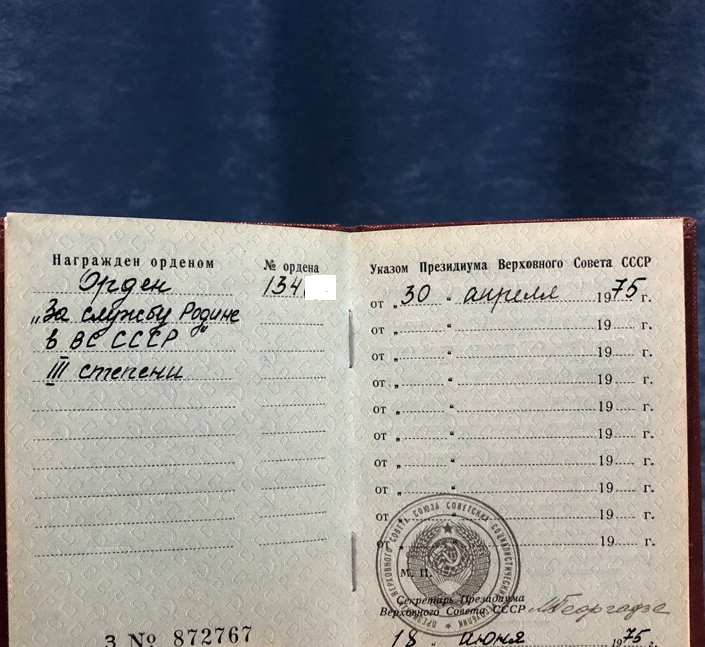 Награжден орденом
№ ордена
Орден
134
„За службу Родине"
в ВС СССР
III степени
З № 872767
Указом Президиума Верховного Совета СССР
от „ 30 “ апреля 1975 г.
от „ “ 19 г.
от „ “ 19 г.
от „ “ 19 г.
от „ “ 19 г.
от „ “ 19 г.
от „ “ 19 г.
от „ “ 19 г.
от „ “ 19 г.
от „ “ 19 г.
М. П.
Секретарь Президиума
Верховного Совета СССР МГеоргадзе
18 „ июня 1975 г.
ПРЕЗИДИУМ ВЕРХОВНОГО СОВЕТА СОЮЗА СОВЕТСКИХ СОЦИАЛИСТИЧЕСКИХ РЕСПУБЛИК